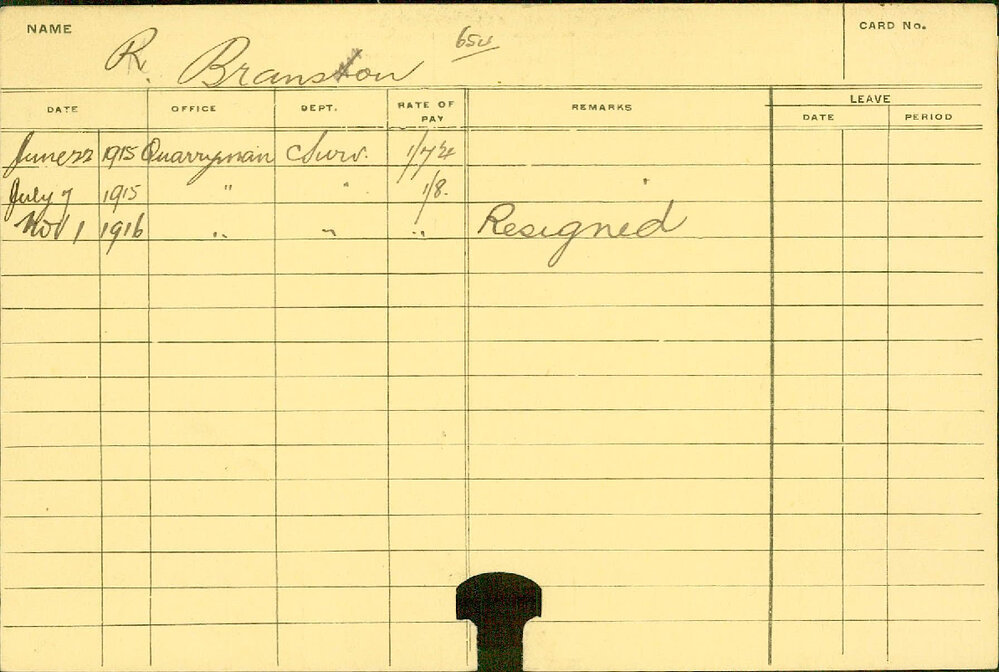 NAME R. Branston 65u CARD No.
DATE OFFICE DEPT. RATE OF PAY REMARKS LEAVE
DATE PERIOD
June 22 1915 Quarryman Surv. 1/7½
July 7 1915 " " 1/8.
Nov 1 1916 " " " Resigned